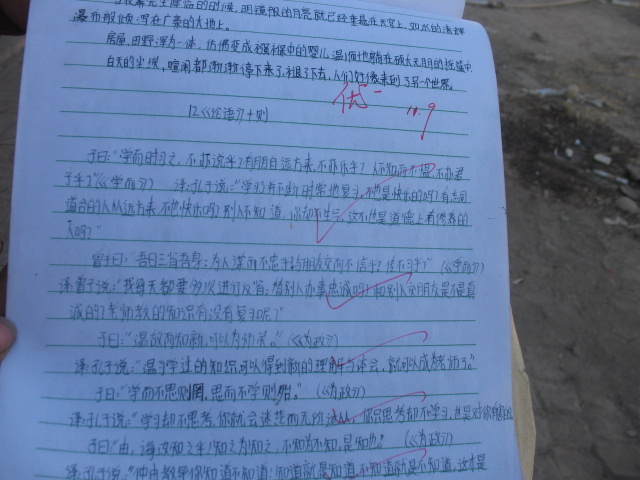 瀑布般倾泻在广袤的大地上。
房屋,田野浑为一体,仿佛变成襁褓中的婴儿,温顺地躺在硕大无朋的摇篮中,
白天的尘埃,喧闹都渐渐停下来了,褪了下去,人们好像来到了另一个世界。
优
11.9
12《论语》十则
子曰:“学而时习之,不亦说乎?有朋自远方来,不亦乐乎?人不知而不愠,不亦君
子乎?”《学而》 译:孔子说:“学习并不断时常地复习,不也是快乐的吗?有志同
道合的人从远方来,不也快乐吗?别人不知道,你却不生气,这不也是道德上有修养的
人吗?”
曾子曰:“吾日三省吾身:为人谋而不忠乎?与朋友交而不信乎?传不习乎?”《学而》
译:曾子说:“我每天都要多次进行反省:替别人办事忠诚吗?和别人交朋友是不是真
诚的?老师教的知识有没有复习呢?”
子曰:“温故而知新,可以为师矣。”《为政》
译:孔子说:“温习学过的知识可以得到新的理解与体会,就可以成为老师了。”
子曰:“学而不思则罔,思而不学则殆。”《为政》
译:孔子说:“学习却不思考,你就会迷茫而无所适从,你只思考却不学习,也是对你有
子曰:“由,诲汝知之乎!知之为知之,不知为不知,是知也。”《为政》
译:孔子说:“仲由,教导你知道不知道:知道就是知道,不知道就是不知道,这才是